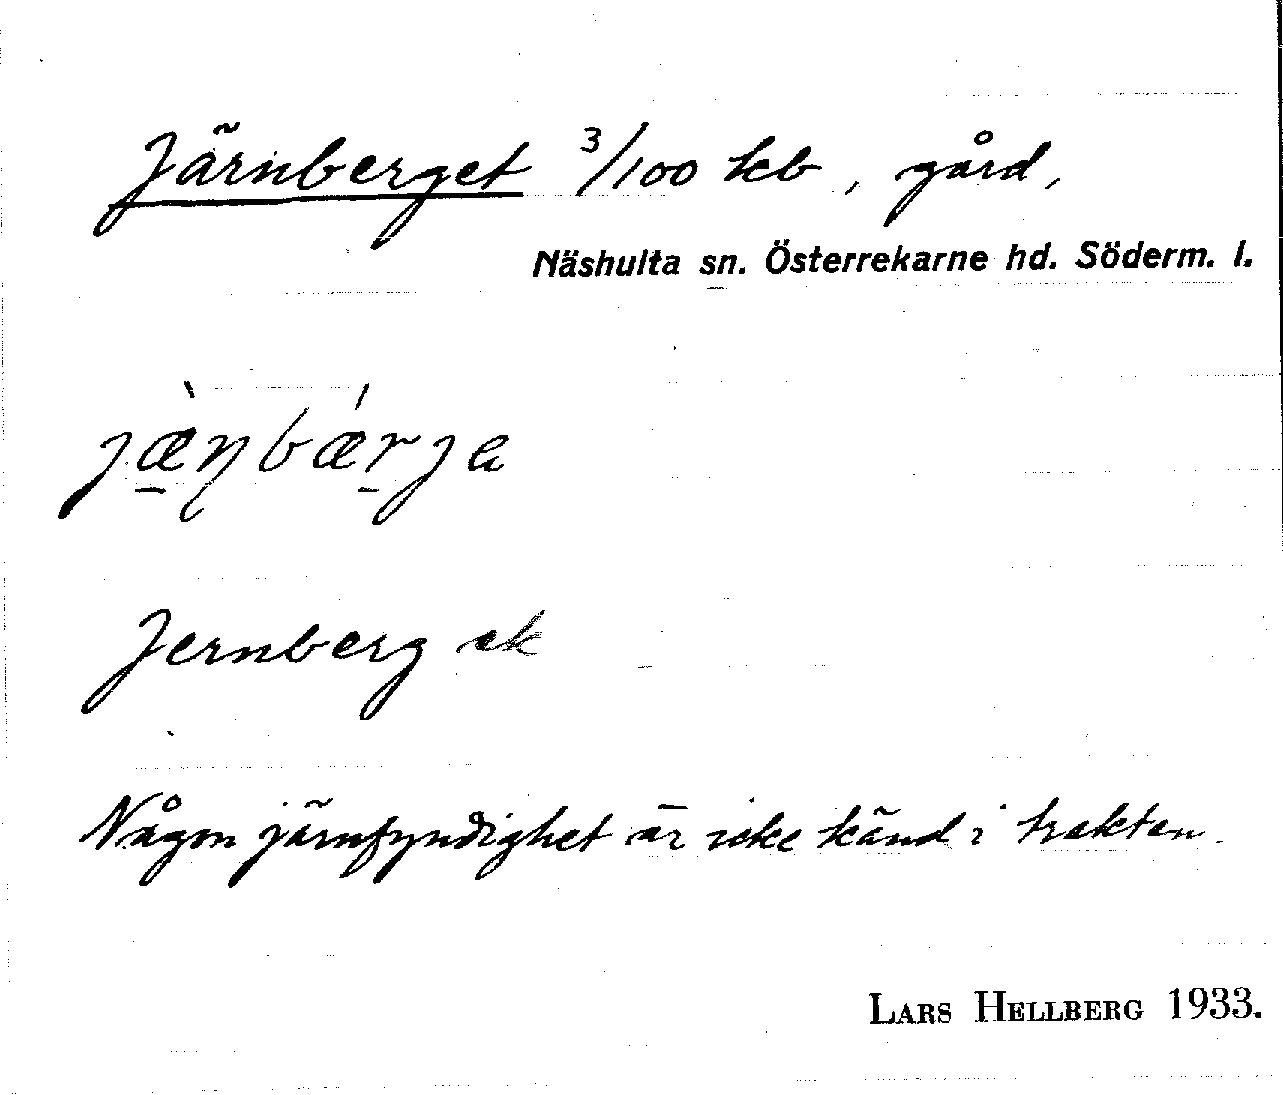 Järnberget 3/100 kb, gård,
Näshulta sn. Österrekarne hd. Söderm. l.
jæ̠̀ɳbǽr̠ja
Jernberg ek
Någon järnfyndighet är icke känd i trakten.
LARS HELLBERG 1933.